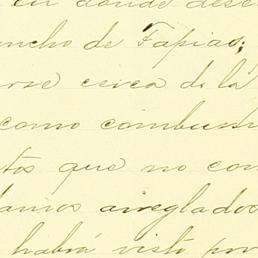 en donde dese
ncho de Tapias;
rse cerca de lá
como combusti
tos que no con
lamos arreglados
habrá visto por